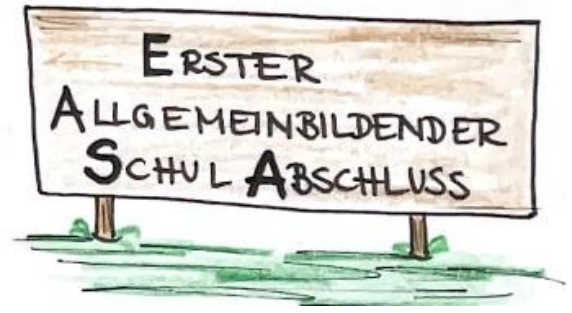 ERSTER
ALLGEMEINBILDENDER
SCHUL ABSCHLUSS